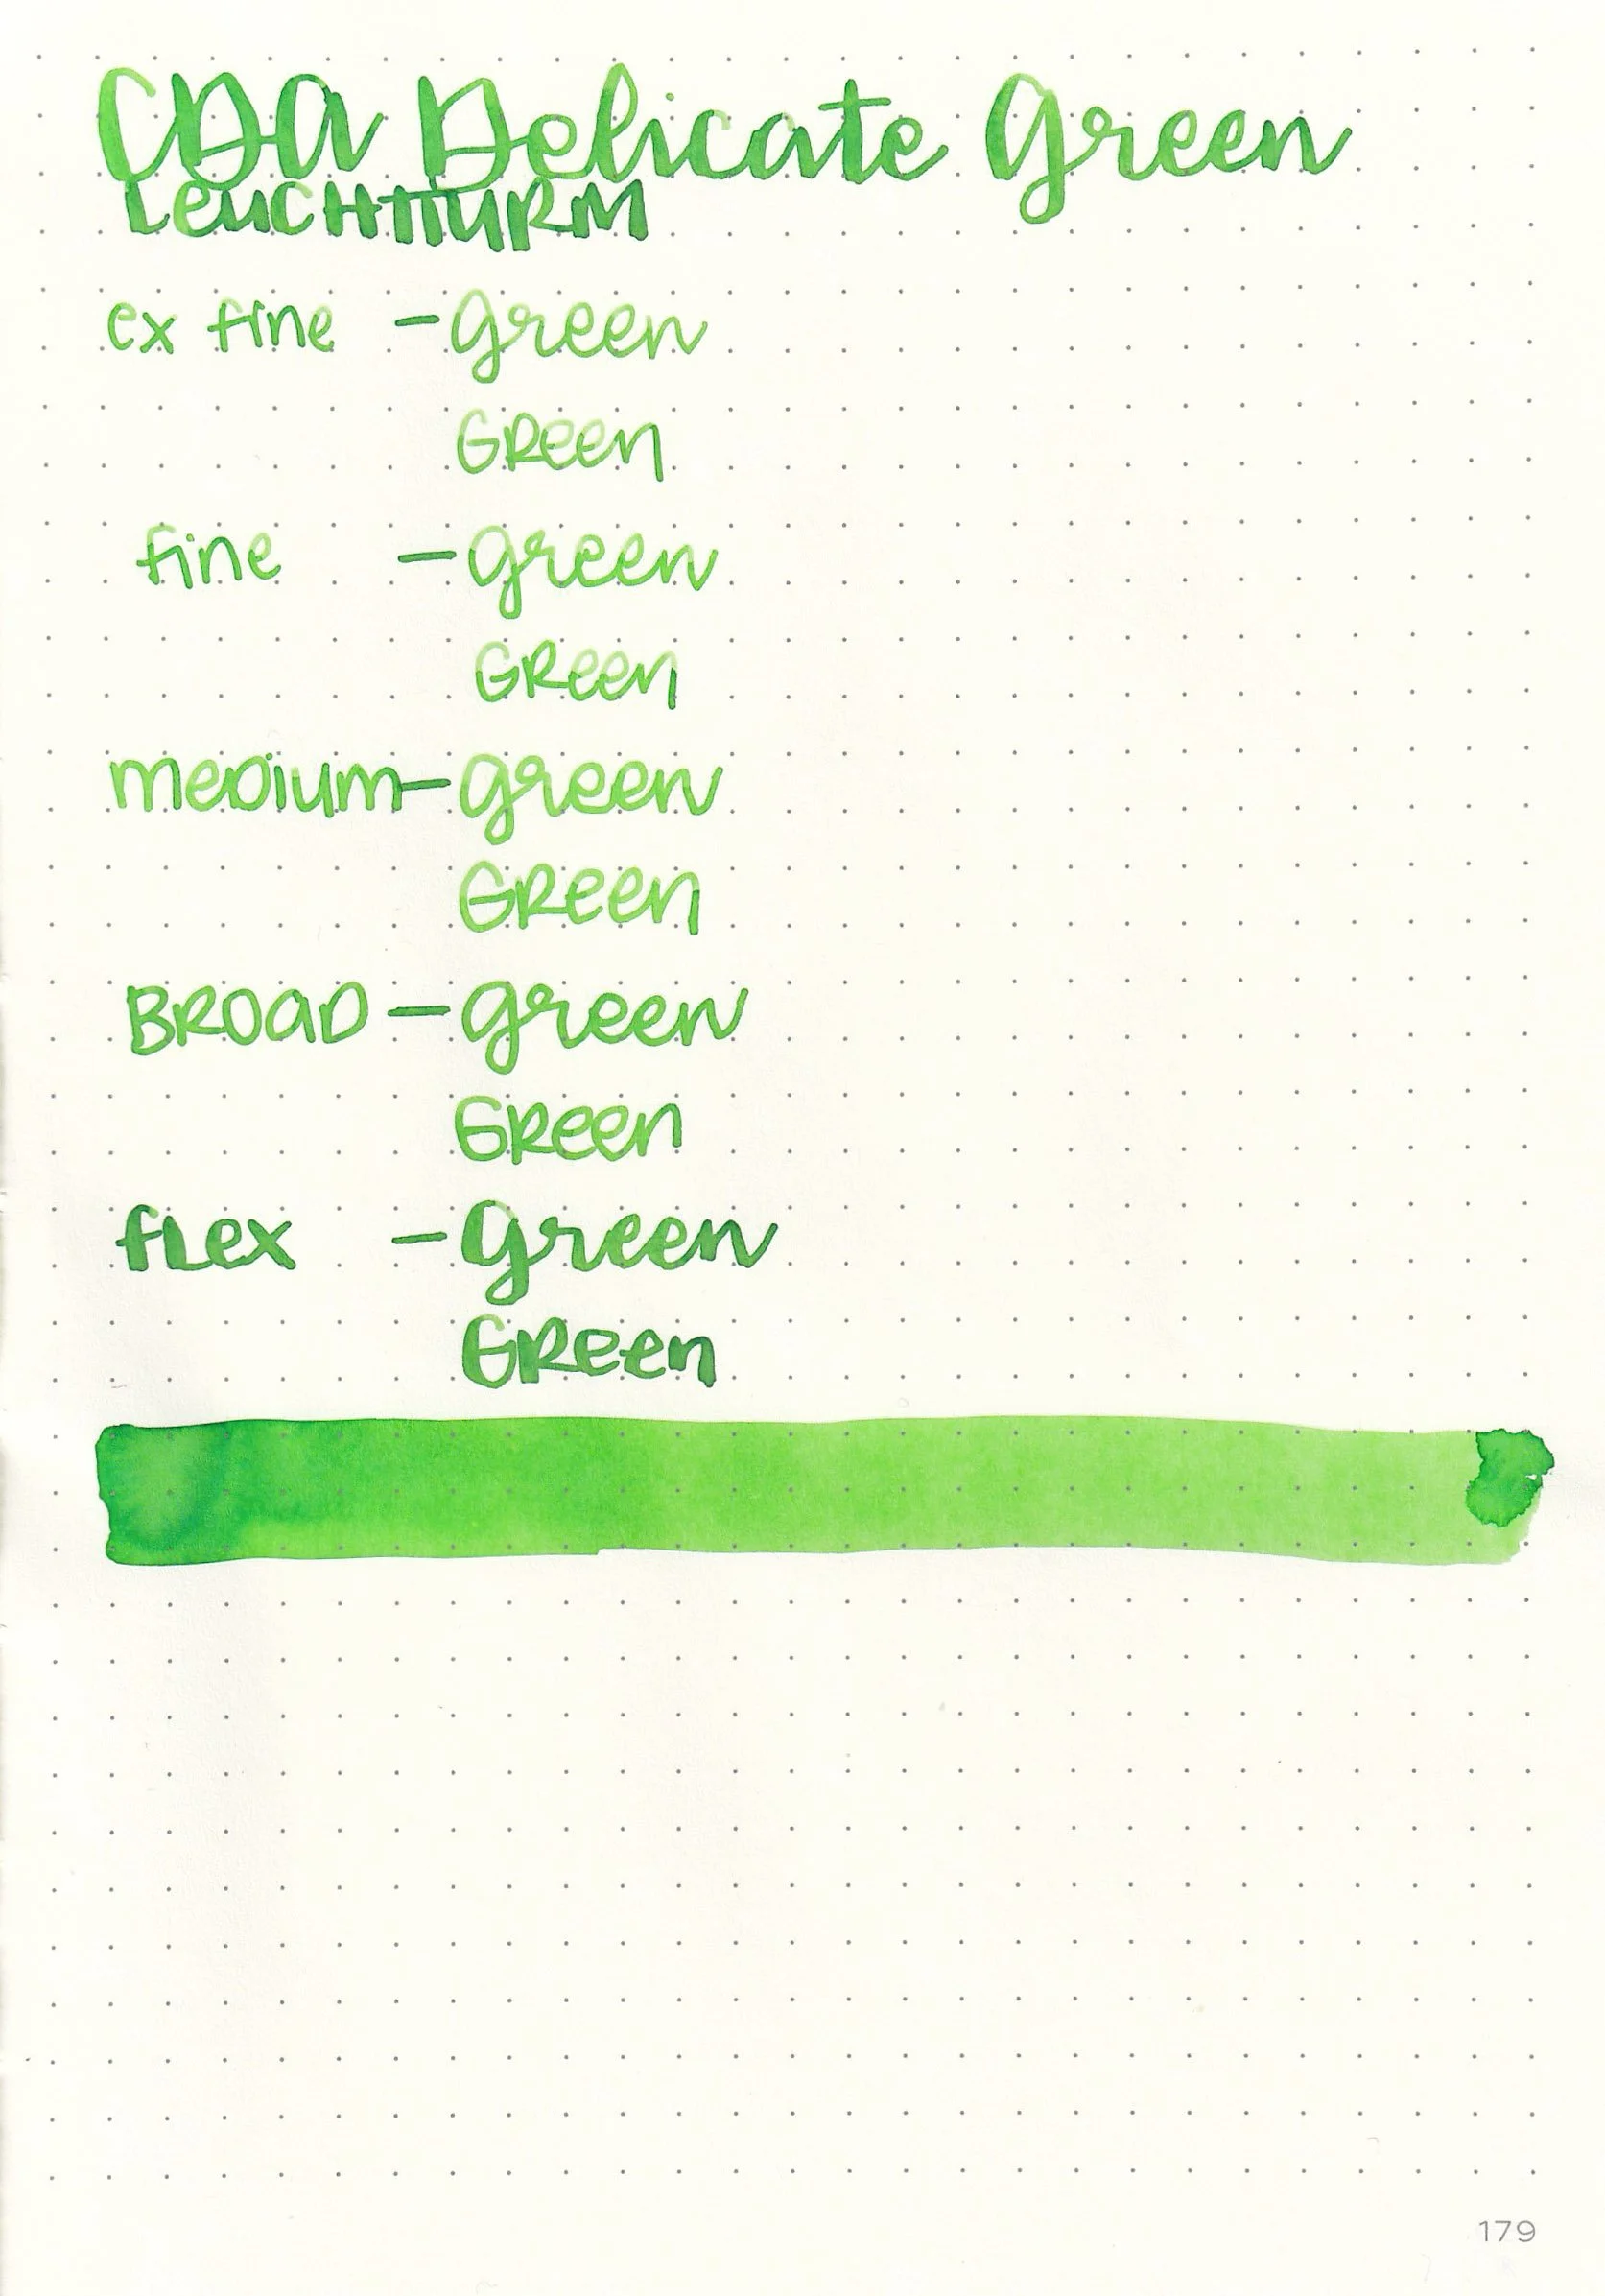 CDA Delicate Green
LEUCHTTURM
ex fine - green
GReen
fine - green
GReen
meDium - green
GReen
BROAD - green
GReen
fLex - green
GReen
179